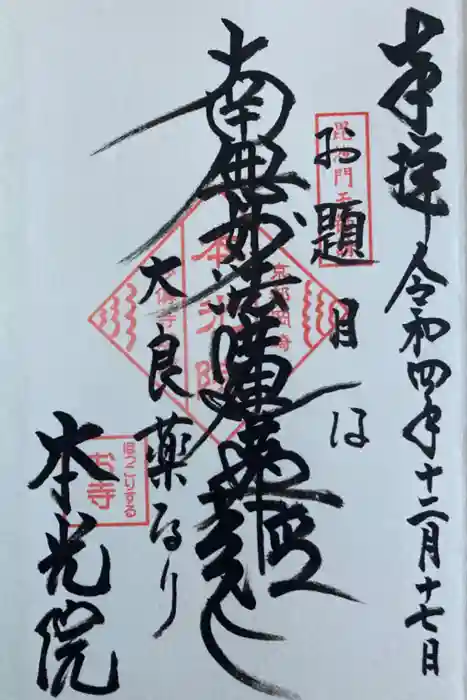 奉拝 令和四年十二月十七日
お題目は
南無妙法蓮華経
大良薬なり
本光院
京都岡崎
本光院
ほっこりする
お寺